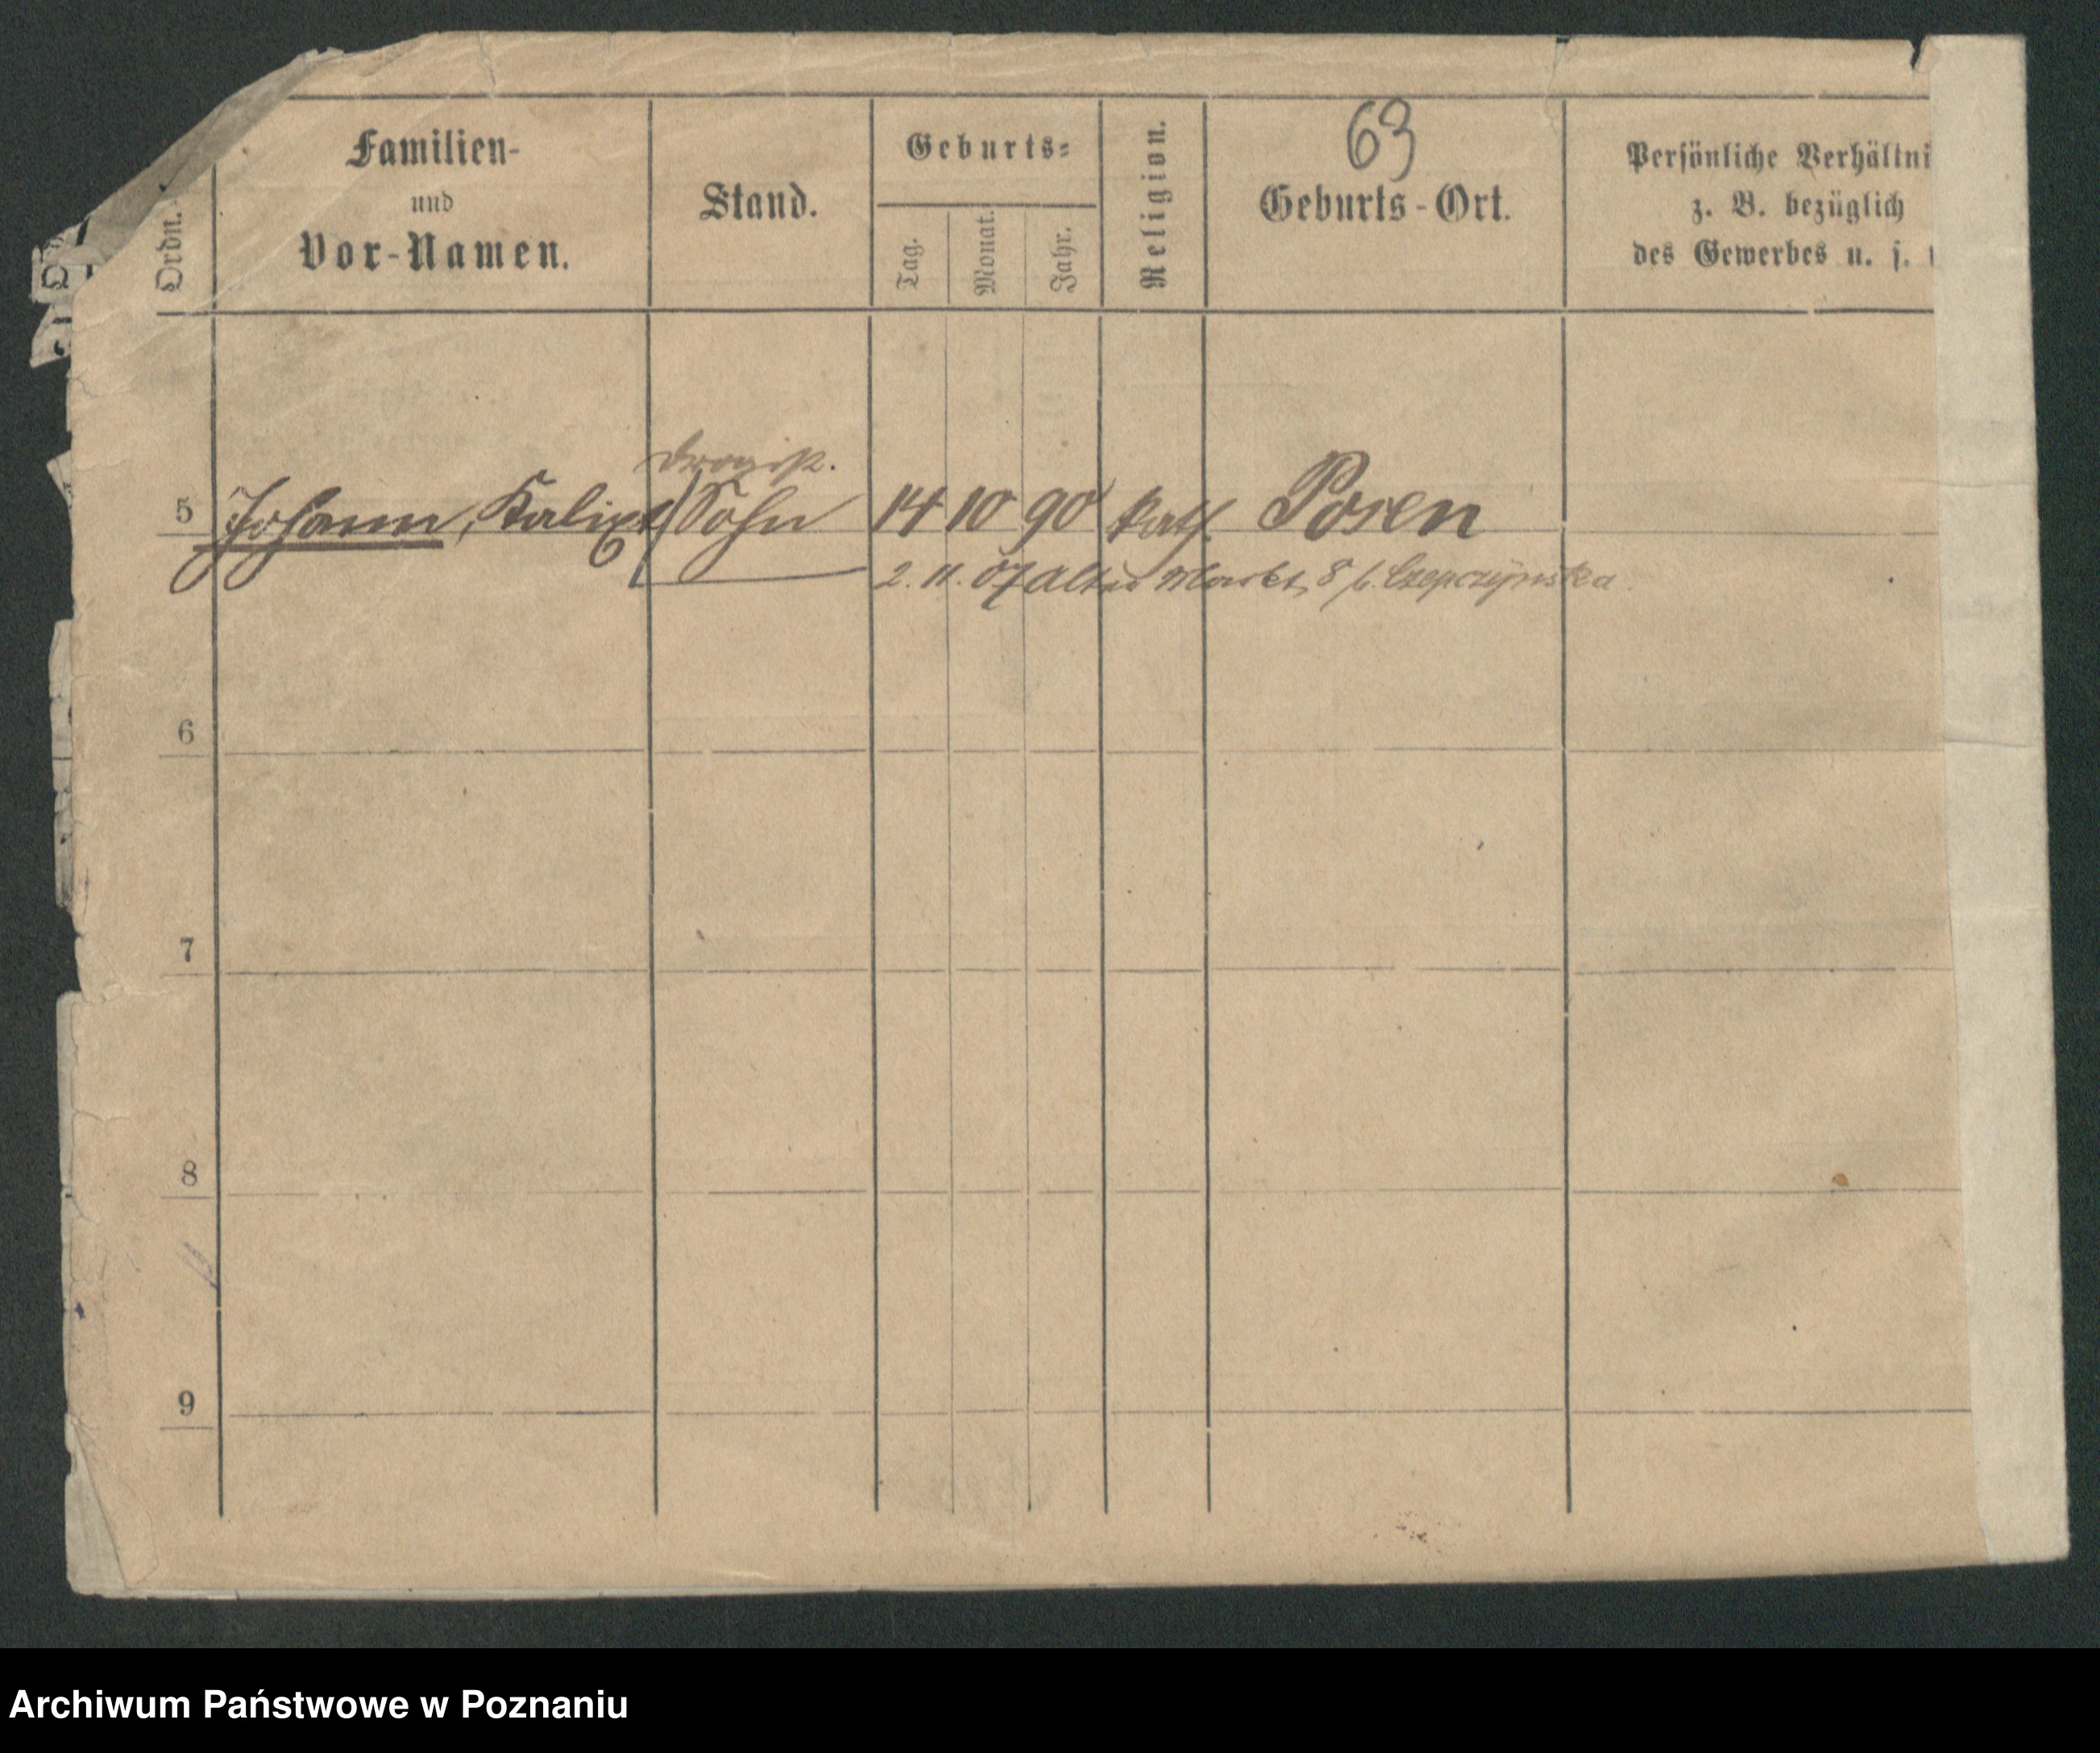 63
Ordn.
Familien-
und
Vor-Namen.
Stand.
Geburts-
Tag.
Monat.
Jahr.
Religion.
Geburts-Ort.
Persönliche Verhältni
z. B. bezüglich
des Gewerbes u. s.
Drogist.
5 Johann, Kalixt Sohn 14 10 90 kath. Posen
2. 11. 07 Alter Markt 8 b. Czepczynska
6
7
8
9
Archiwum Państwowe w Poznaniu